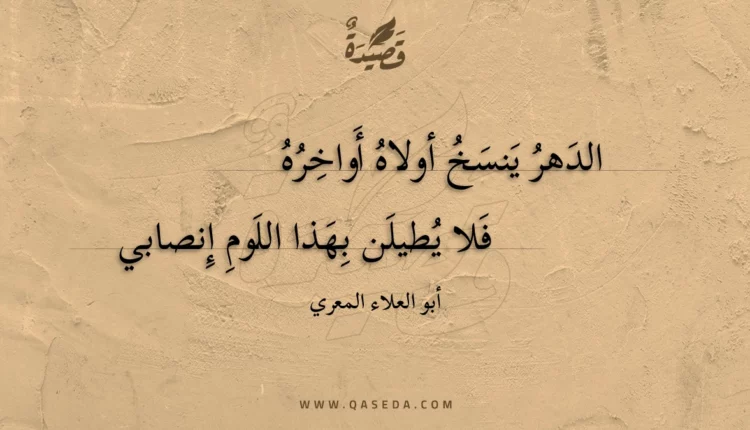 قَصِيدَةٌ
الدَهرُ يَنسَخُ أولاهُ أَواخِرُهُ
فَلا يُطيلَن بِهَذا اللَومِ إِنصابي
أبو العلاء المعري
WWW.QASEDA.COM